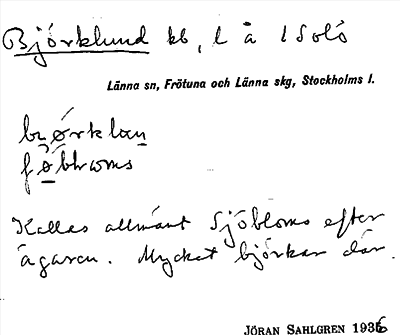 Björklund kb, l å Isolö
Länna sn, Frötuna och Länna skg, Stockholms l.
Kallas allmänt Sjöbloms efter
ägaren. Mycket björkar där.
JÖRAN SAHLGREN 1936